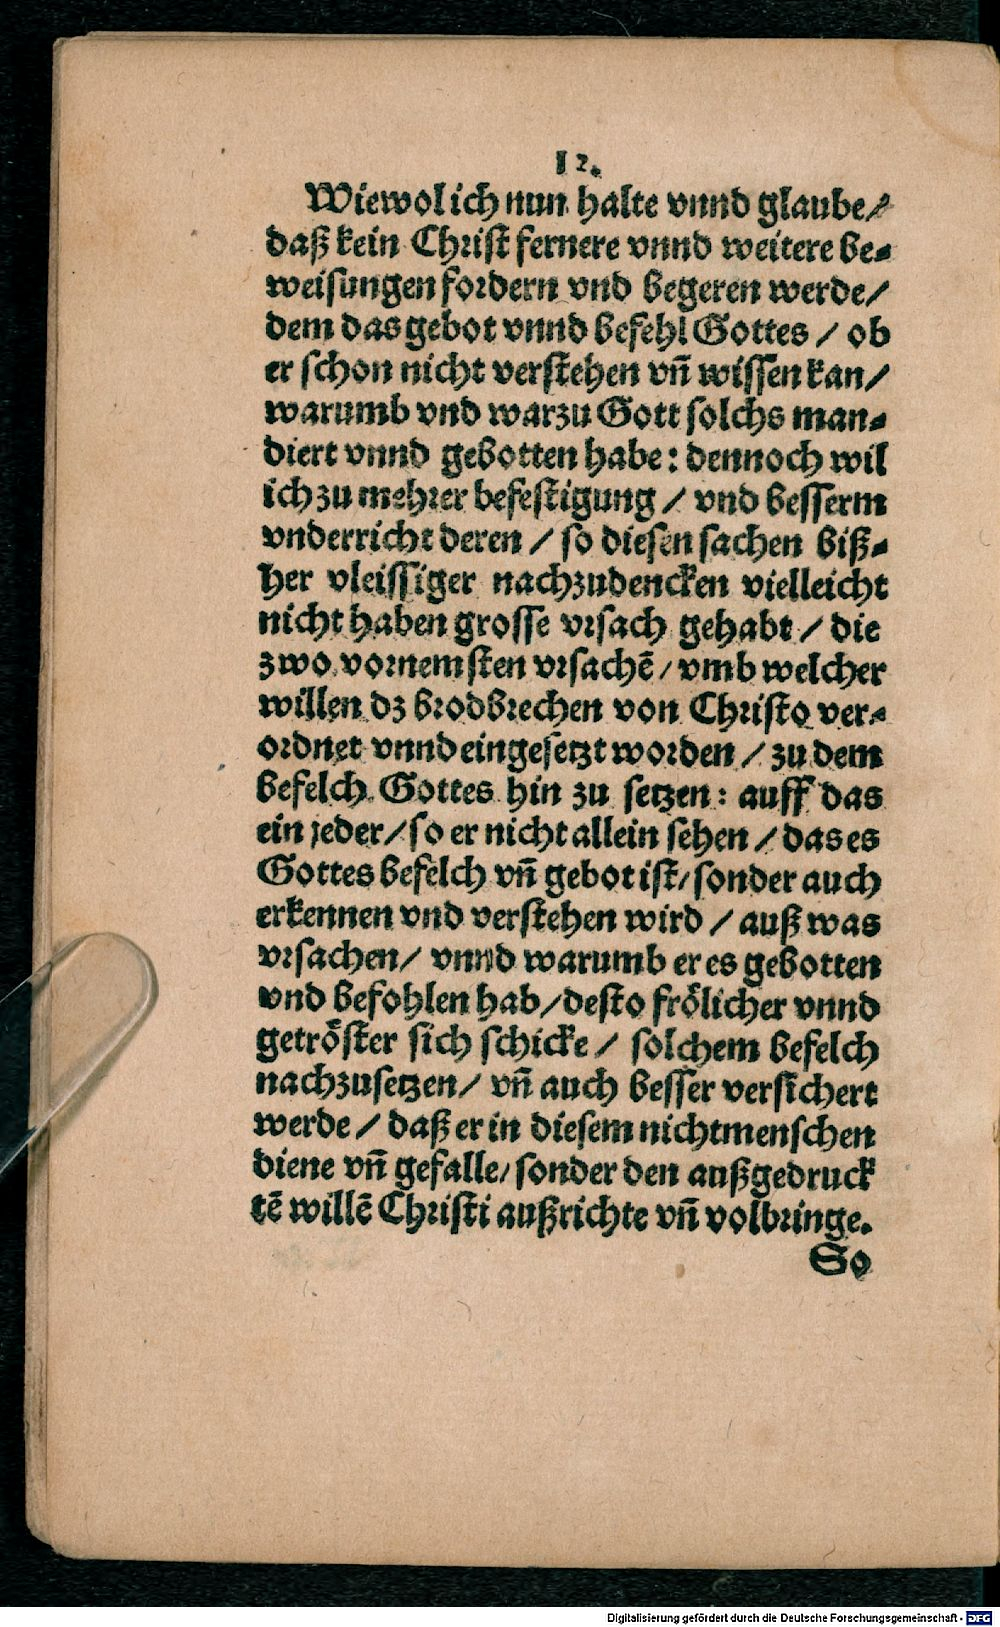 12.
Wiewol ich nun halte vnnd glaube/
daß kein Christ fernere vnnd weitere be-
weisungen fordern vnd begeren werde/
dem das gebot vnnd befehl Gottes / ob
er schon nicht verstehen vñ wissen kan/
warumb vnd warzu Gott solchs man-
diert vnnd gebotten habe: dennoch wil
ich zu mehrer befestigung / vnd besserm
vnderricht deren / so diesen sachen biß-
her vleissiger nachzudencken vielleicht
nicht haben grosse vrsach gehabt / die
zwo vornemsten vrsachē/ vmb welcher
willen dz brodbrechen von Christo ver-
ordnet vnnd eingesetzt worden / zu dem
befelch Gottes hin zu setzen: auff das
ein jeder/ so er nicht allein sehen / das es
Gottes befelch vñ gebot ist/ sonder auch
erkennen vnd verstehen wird / auß was
vrsachen/ vnnd warumb er es gebotten
vnd befohlen hab/ desto frölicher vnnd
getröster sich schicke / solchem befelch
nachzusetzen/ vñ auch besser versichert
werde / daß er in diesem nicht menschen
diene vñ gefalle/ sonder den außgedruck
tē willē Christi außrichte vñ volbringe.
So
Digitalisierung gefördert durch die Deutsche Forschungsgemeinschaft - DFG